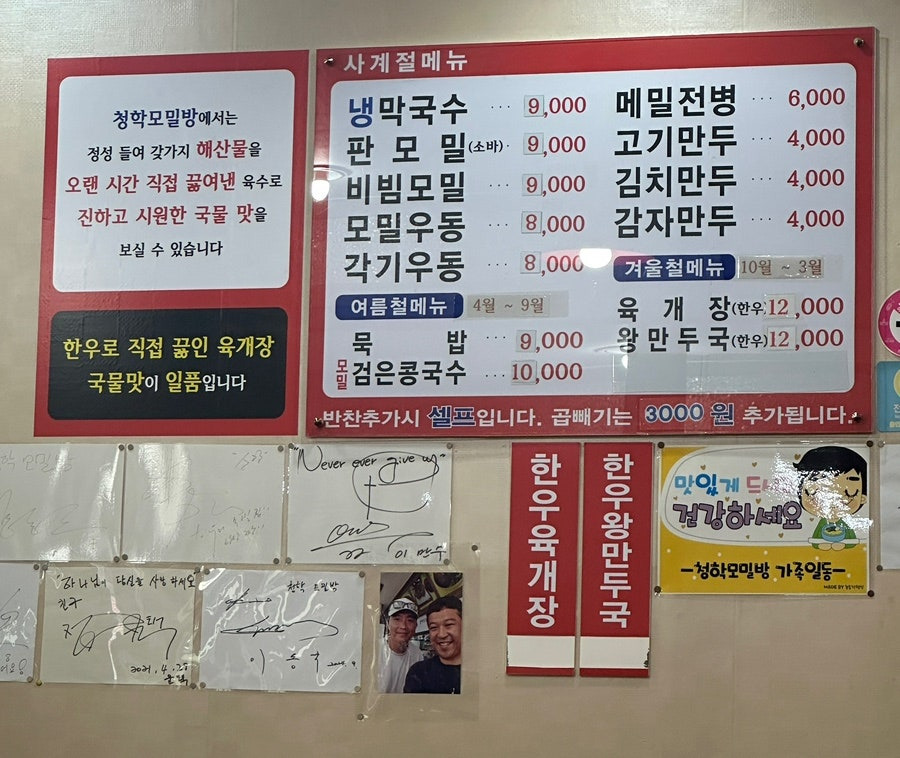 청학모밀방에서는
정성 들여 갖가지 해산물을
오랜 시간 직접 끓여낸 육수로
진하고 시원한 국물 맛을
보실 수 있습니다
한우로 직접 끓인 육개장
국물맛이 일품입니다
사계절메뉴
냉막국수 ··· 9,000
판모밀(소바)· 9,000
비빔모밀 ··· 9,000
모밀우동 ··· 8,000
각기우동 ··· 8,000
여름철메뉴 4월 ~ 9월
묵밥 ··· 9,000
모밀 검은콩국수 ··· 10,000
메밀전병 ··· 6,000
고기만두 ··· 4,000
김치만두 ··· 4,000
감자만두 ··· 4,000
겨울철메뉴 10월 ~ 3월
육개장(한우)12,000
왕만두국(한우)12,000
반찬추가시 셀프입니다. 곱빼기는 3000 원 추가됩니다.
"Never ever give up"
이만수
"하나님이 당신을 사랑하시오
2021.4.28
청학모밀방
이동국
한우육개장
한우왕만두국
맛있게 드세요
건강하세요
-청학모밀방 가족일동-